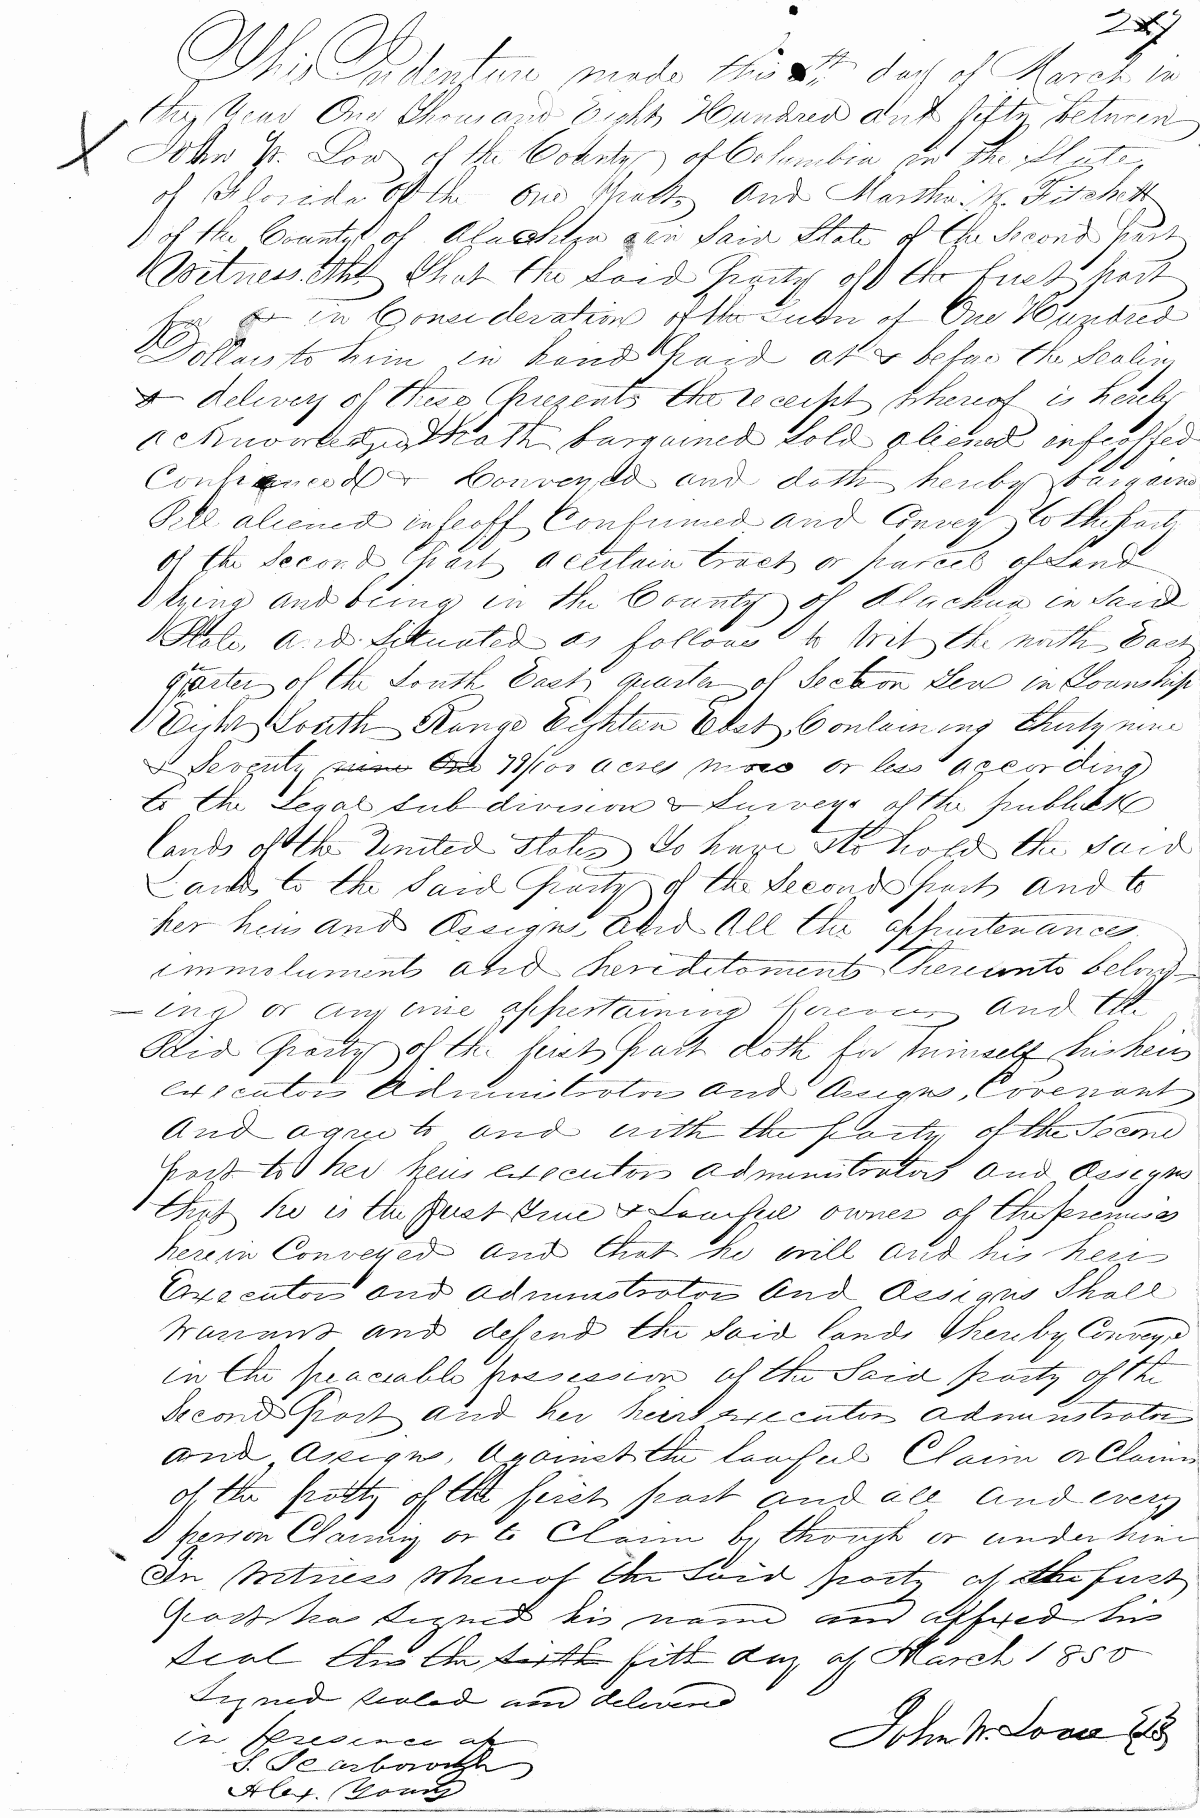 This Indenture made this th day of March in
the Year One Thousand Eight Hundred and fifty between
John W. Low of the County of Columbia in the State
of Florida of the one Part, and Martha Fitchett
of the County of Alachua in Said State of the Second part
Witnesseth That the Said Party of the first part
for & in Consideration of the Sum of One Hundred
Dollars to him in hand Paid at & before the Sealing
& delivery of these Presents the receipt whereof is hereby
acknowledged hath bargained Sold aliened infeoffed
& Conveyed and doth hereby bargain
Sell aliened infeoff Confirmed and Convey to the party
of the Second Part a certain tract or parcel of Land
lying and being in the County of Alachua in Said
State and Situated as follows to Wit the north East
quarter of the South East quarter of Section Ten in Township
Eight South Range Eighteen East, Containing thirty nine
& Seventy nine One 79/100 acres more or less according
to the Legal sub division & Surveys of the publick
lands of the United States To have & to hold the said
Lands to the Said Party of the Second part and to
her heirs and Assigns, and All the appurtenances
immoluments and hereditaments thereunto belong-
-ing or any wise appertaining forever and the
Said Party of the first part doth for himself his heirs
executors administrators and Assigns, Covenant
and agree to and with the party of the Second
part to her heirs executors administrators and Assigns
that he is the Just True & Lawfull owner of the premises
herein Conveyed and that he will and his heirs
Executors and administrators and Assigns Shall
Warrant and defend the Said lands hereby Conveyed
in the peaceable possession of the Said party of the
Second Part and her heirs executors administrators
and Assigns, Against the lawfull Claim or Claims
of the party of the first part and all and every
person Claiming or to Claim by though or under him
In Witness Whereof the Said party of the first
Part has Signed his name and affixed his
Seal this the sixth fifth day of March 1850
Signed sealed and delivered
in Presence of
John W. Low
S. Scarborough
Alex. Young